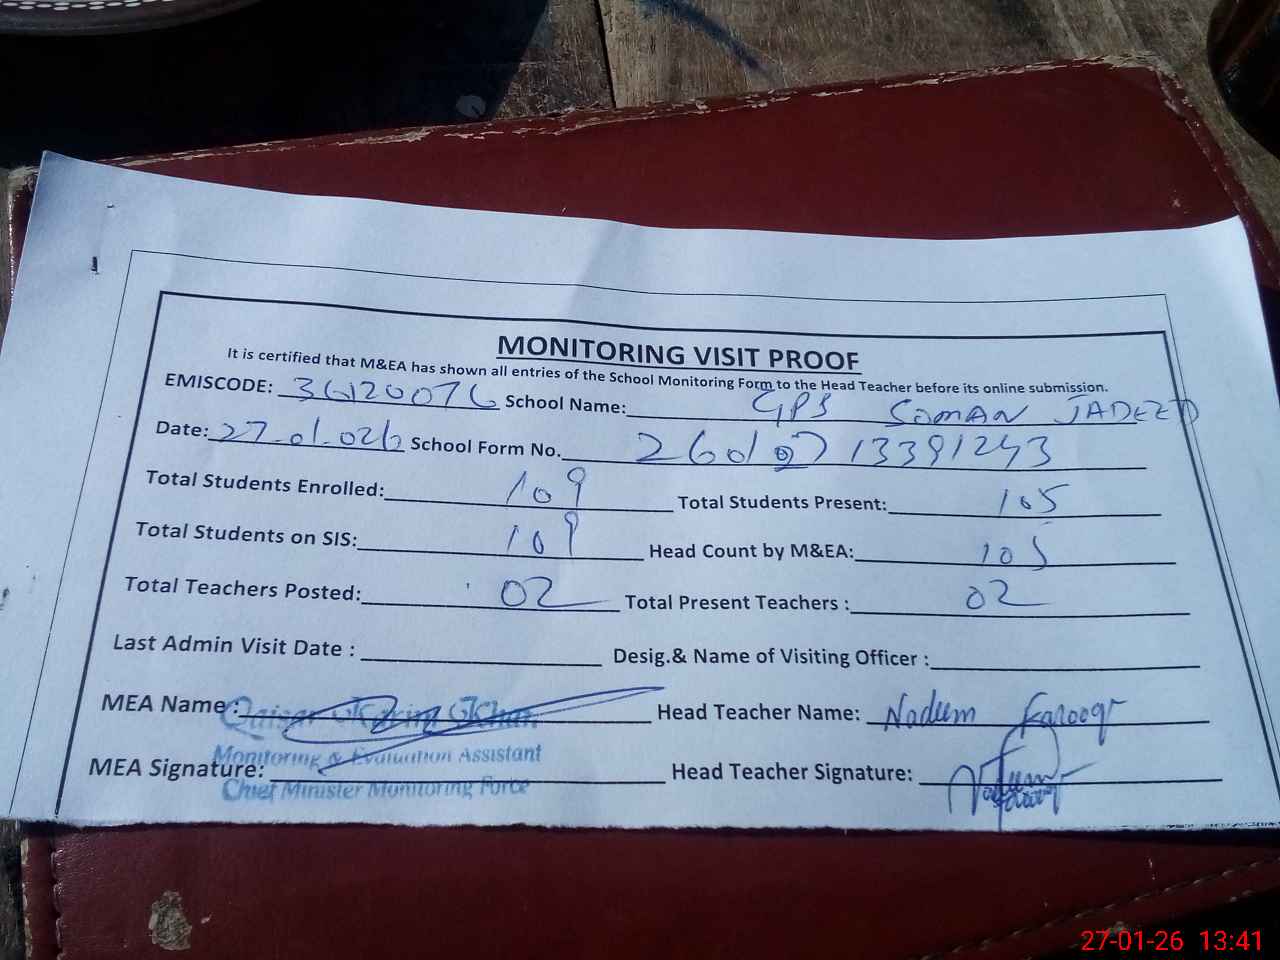 MONITORING VISIT PROOF
It is certified that M&EA has shown all entries of the School Monitoring Form to the Head Teacher before its online submission.
EMISCODE: 36120076 School Name: GPS SOMAN JADEED
Date: 27.01.026 School Form No. 26012713391243
Total Students Enrolled: 109 Total Students Present: 105
Total Students on SIS: 109 Head Count by M&EA: 105
Total Teachers Posted: 02 Total Present Teachers : 02
Last Admin Visit Date : Desig.& Name of Visiting Officer :
MEA Name : Qaisar Karim Khan Head Teacher Name: Nadeem Farooq
Monitoring & Evaluation Assistant
MEA Signature: Head Teacher Signature:
Chief Minister Monitoring Force
27-01-26 13:41